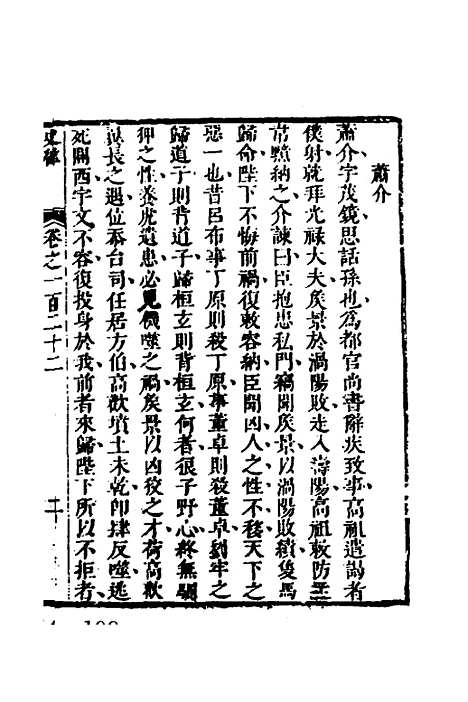 蕭介
蕭介字茂鏡思話孫也爲都官尚書辭疾致事高祖遣謁者
僕射就拜光祿大夫矦景於渦陽敗走入壽陽高祖敕防主
常黯納之介諫曰臣抱忠私門竊聞矦景以渦陽敗績隻馬
歸命陛下不悔前禍復敕容納臣聞凶人之性不移天下之
惡一也昔呂布事丁原則殺丁原事董卓則殺董卓劉牢之
歸道子則背道子歸桓玄則背桓玄何者很子野心終無馴
狎之性養虎遺患必見機噬之禍矦景以凶狡之才荷高歡
翼長之遇位忝台司任居方伯高歡墳土未乾卽肆反噬逃
死關西宇文不容復投身於我前者來歸陛下所以不拒者
史稗 卷之一百二十二